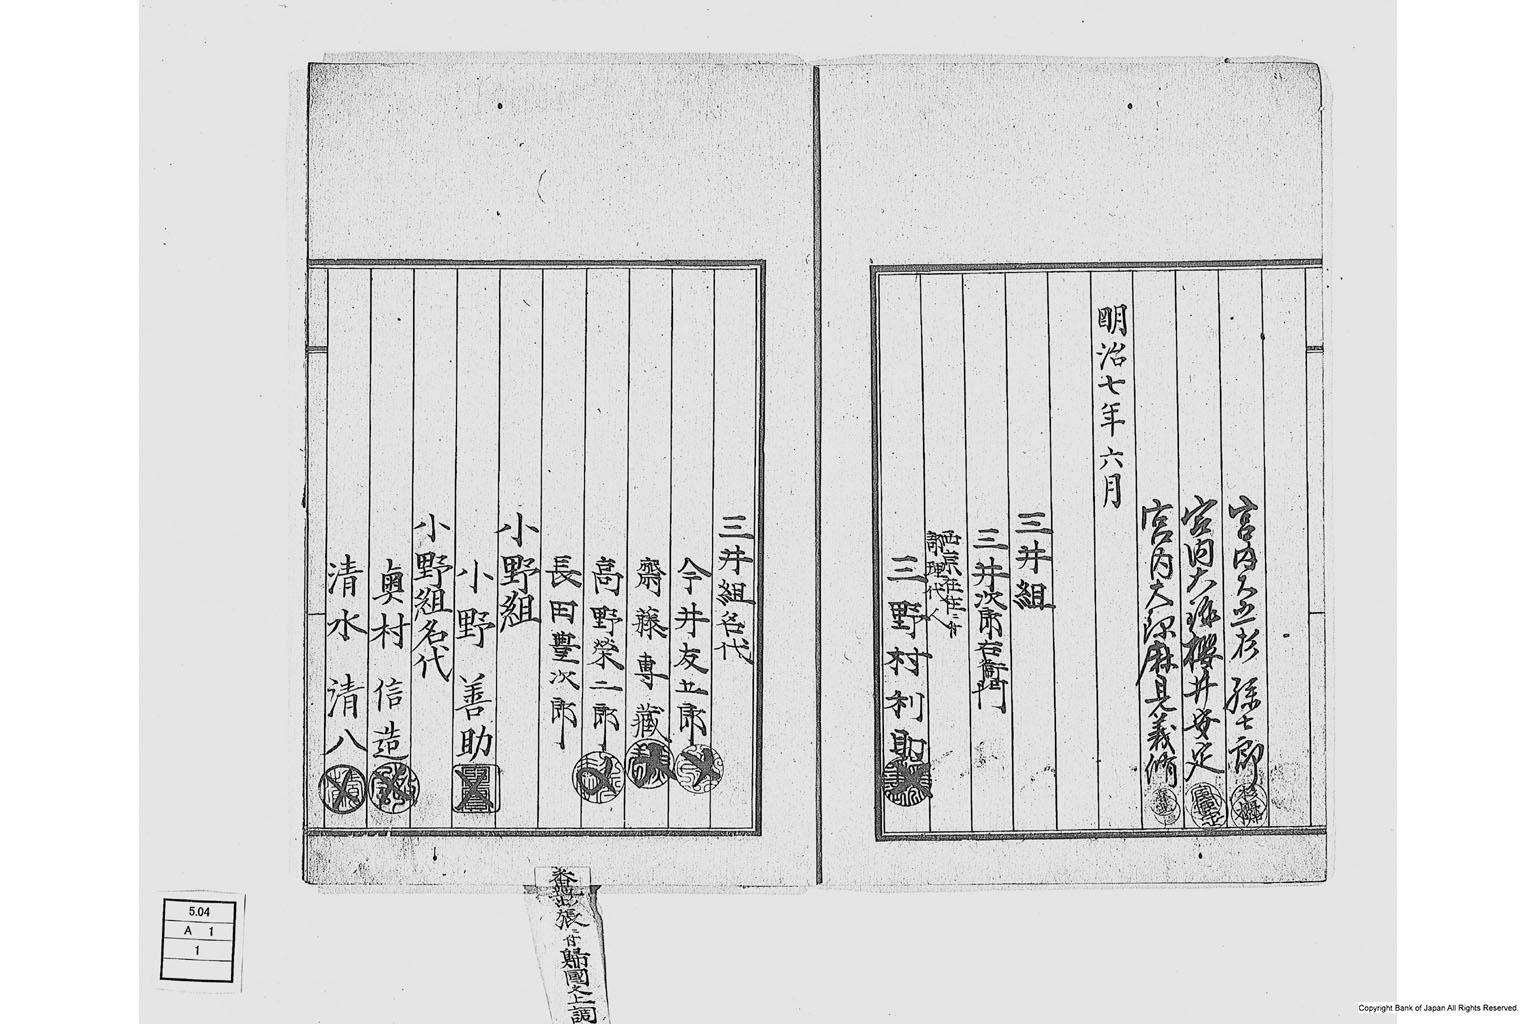 宮内大丞杉孫七郎
宮内大録櫻井安定
宮内大録麻見義脩
明治七年六月
三井組
三井次郎右衛門
西京在住ニ付
調理代人
三野村利助
三井組名代
今井友五郎
齋藤專藏
高野榮二郎
長田豊次郎
小野組
小野善助
小野組名代
奥村信造
清水清八
出張ニ付歸國之上調
5.04
A 1
1
Copyright Bank of Japan All Rights Reserved.